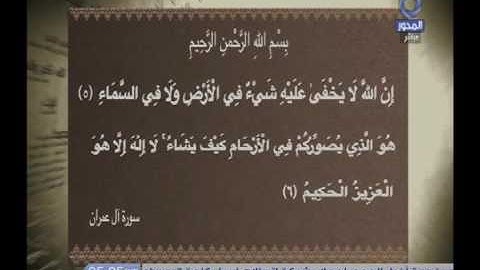 المحور
مباشر
بِسْمِ اللهِ الرَّحْمٰنِ الرَّحِيْمِ
إِنَّ اللَّهَ لَا يَخْفَىٰ عَلَيْهِ شَيْءٌ فِي الْأَرْضِ وَلَا فِي السَّمَاءِ (٥)
هُوَ الَّذِي يُصَوِّرُكُمْ فِي الْأَرْحَامِ كَيْفَ يَشَاءُ ۚ لَا إِلَٰهَ إِلَّا هُوَ
الْعَزِيزُ الْحَكِيمُ (٦)
سورة آل عمران